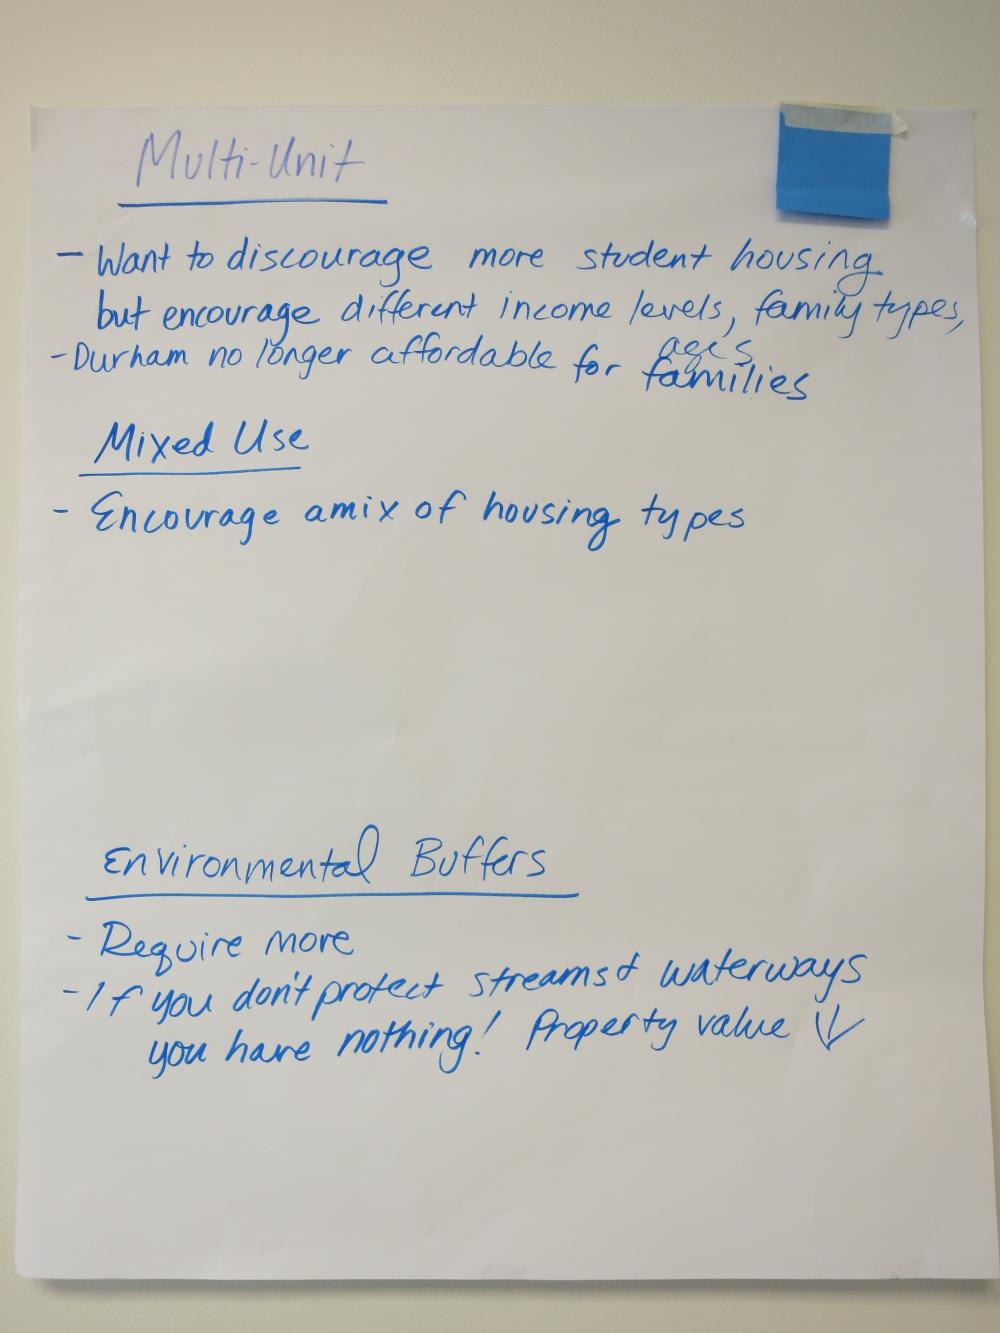 Multi-Unit
- Want to discourage more student housing
but encourage different income levels, family types,
ages
- Durham no longer affordable for families
Mixed Use
- Encourage a mix of housing types
Environmental Buffers
- Require more
- If you don't protect streams & waterways
you have nothing! Property value ↓